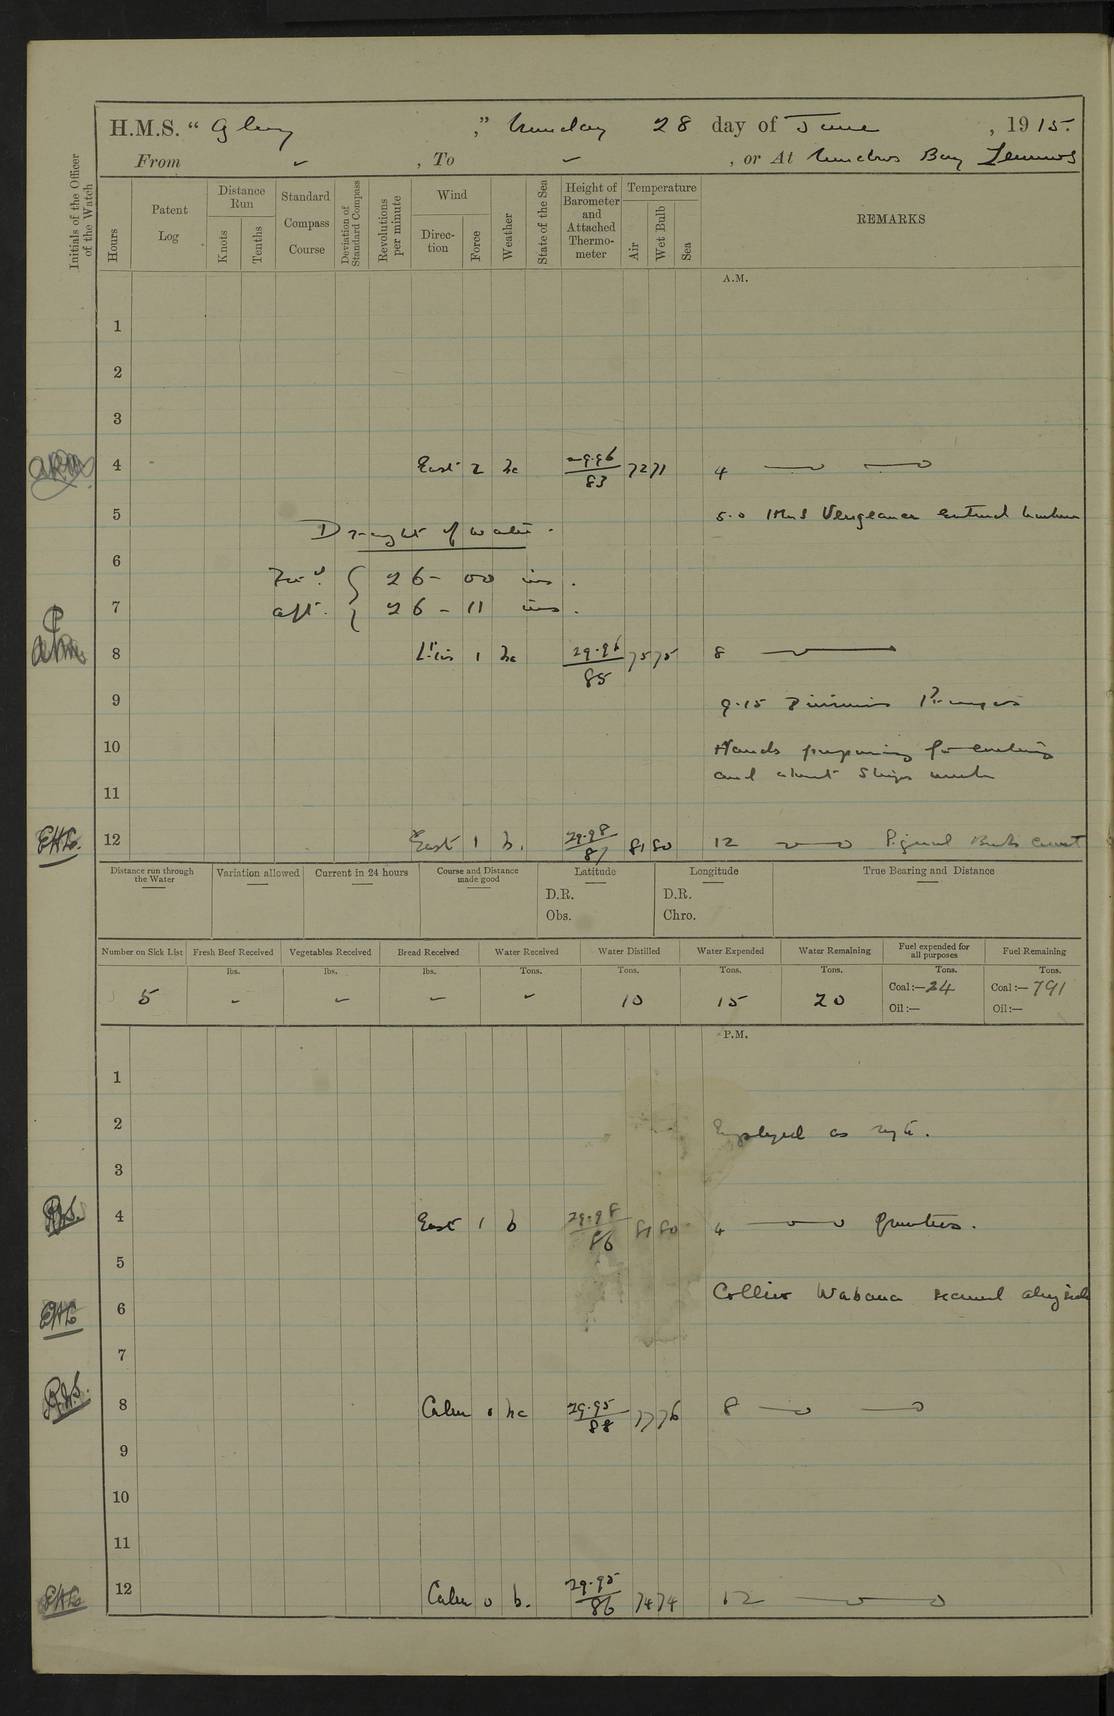 H.M.S. "Glory," Monday 28 day of June, 1915.
From ~, To ~, or At Mudros Bay Lemnos
Initials of the Officer of the Watch
Hours
Patent Log
Distance Run
Knots
Tenths
Standard Compass Course
Deviation of Standard Compass
Revolutions per minute
Wind
Direc-tion
Force
Weather
State of the Sea
Height of Barometer and Attached Thermo-meter
Temperature
Air
Wet Bulb
Sea
REMARKS
A.M.
1
2
3
4 East 2 bc 29.96 83 72 71 4
5 5.0 HMS Vengeance entered harbour
Draught of water.
6 For'd 26 - 00 ins.
7 aft. 26 - 11 ins.
8 1 bc 29.96 85 75 75 8
9 9.15 Divisions Prayers
10 Hands preparing for coaling
and about Ships work
11
EHL. 12 East 1 b. 29.98 87 81 80 12
Distance run through the Water
Variation allowed
Current in 24 hours
Course and Distance made good
Latitude
D.R.
Obs.
Longitude
D.R.
Chro.
True Bearing and Distance
Number on Sick List
Fresh Beef Received
Vegetables Received
Bread Received
Water Received
Water Distilled
Water Expended
Water Remaining
Fuel expended for all purposes
Fuel Remaining
lbs. lbs. lbs. Tons. Tons. Tons. Tons. Tons. Tons.
5 - - - - 10 15 20 Coal:— 24 Coal:— 791
Oil:— Oil:—
P.M.
1
2 Employed as reqte.
3
4 East 1 b 29.98 86 81 80 4 Quarters.
5
EHL 6 Collier Wabana secured alongside
7
R.W.S. 8 Calm 0 bc 29.95 88 77 76 8
9
10
11
EHL 12 Calm 0 b. 29.95 86 74 74 12